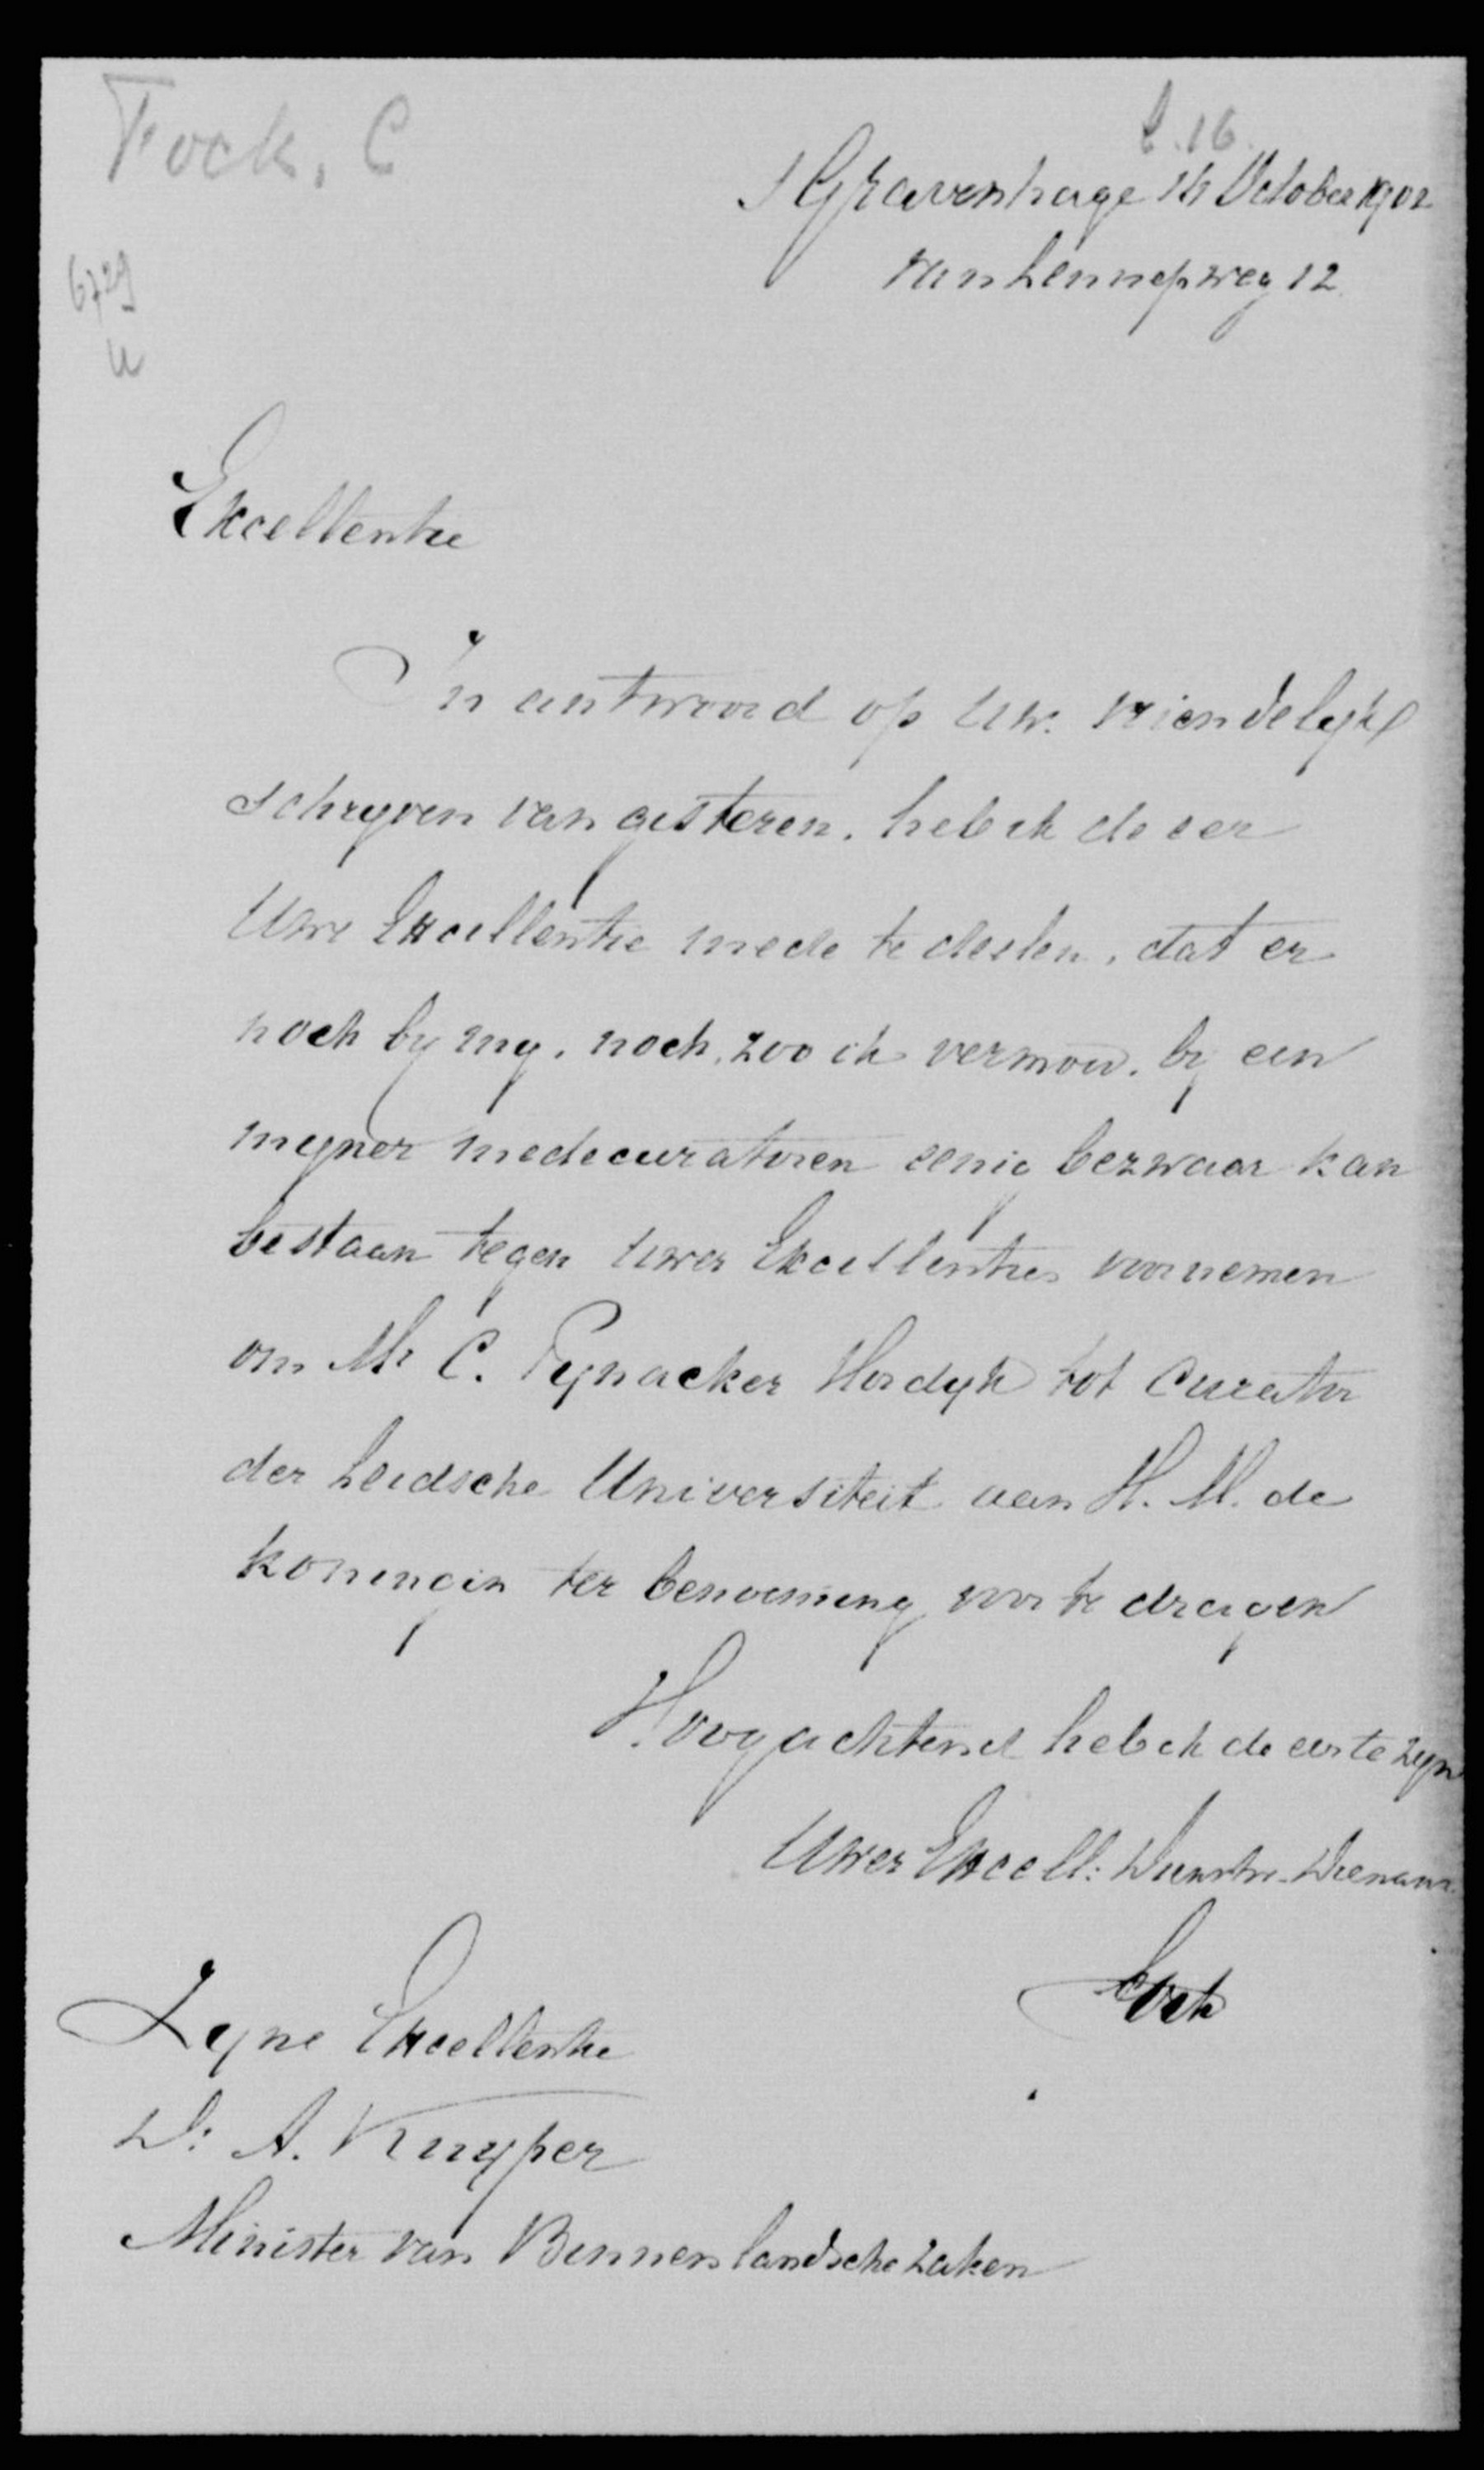 Fock, C
C. 16.
s Gravenhage 16 October 1902
van Lennepweg 12
6729
u
Excellentie
In antwoord op Uw. vriendelijk
schryven van gisteren. heb ik de eer
Uwe Excellentie mede te deelen, dat er
noch by my, noch, zoo ik vermoed. by een
mijner medecuratoren eenig bezwaar kan
bestaan tegen Uwer Excellenties voornemen
om Mr C. Pijnacker Hordijk tot Curator
der Leidsche Universiteit aan H. M. de
Koningin ter benoeming voor te dragen
Hoogachtend heb ik de eer te zijn
Uwer Excell: Dienstw. Dienaar
Fock
Zijne Excellentie
Dr A. Kuyper
Minister van Binnenlandsche zaken